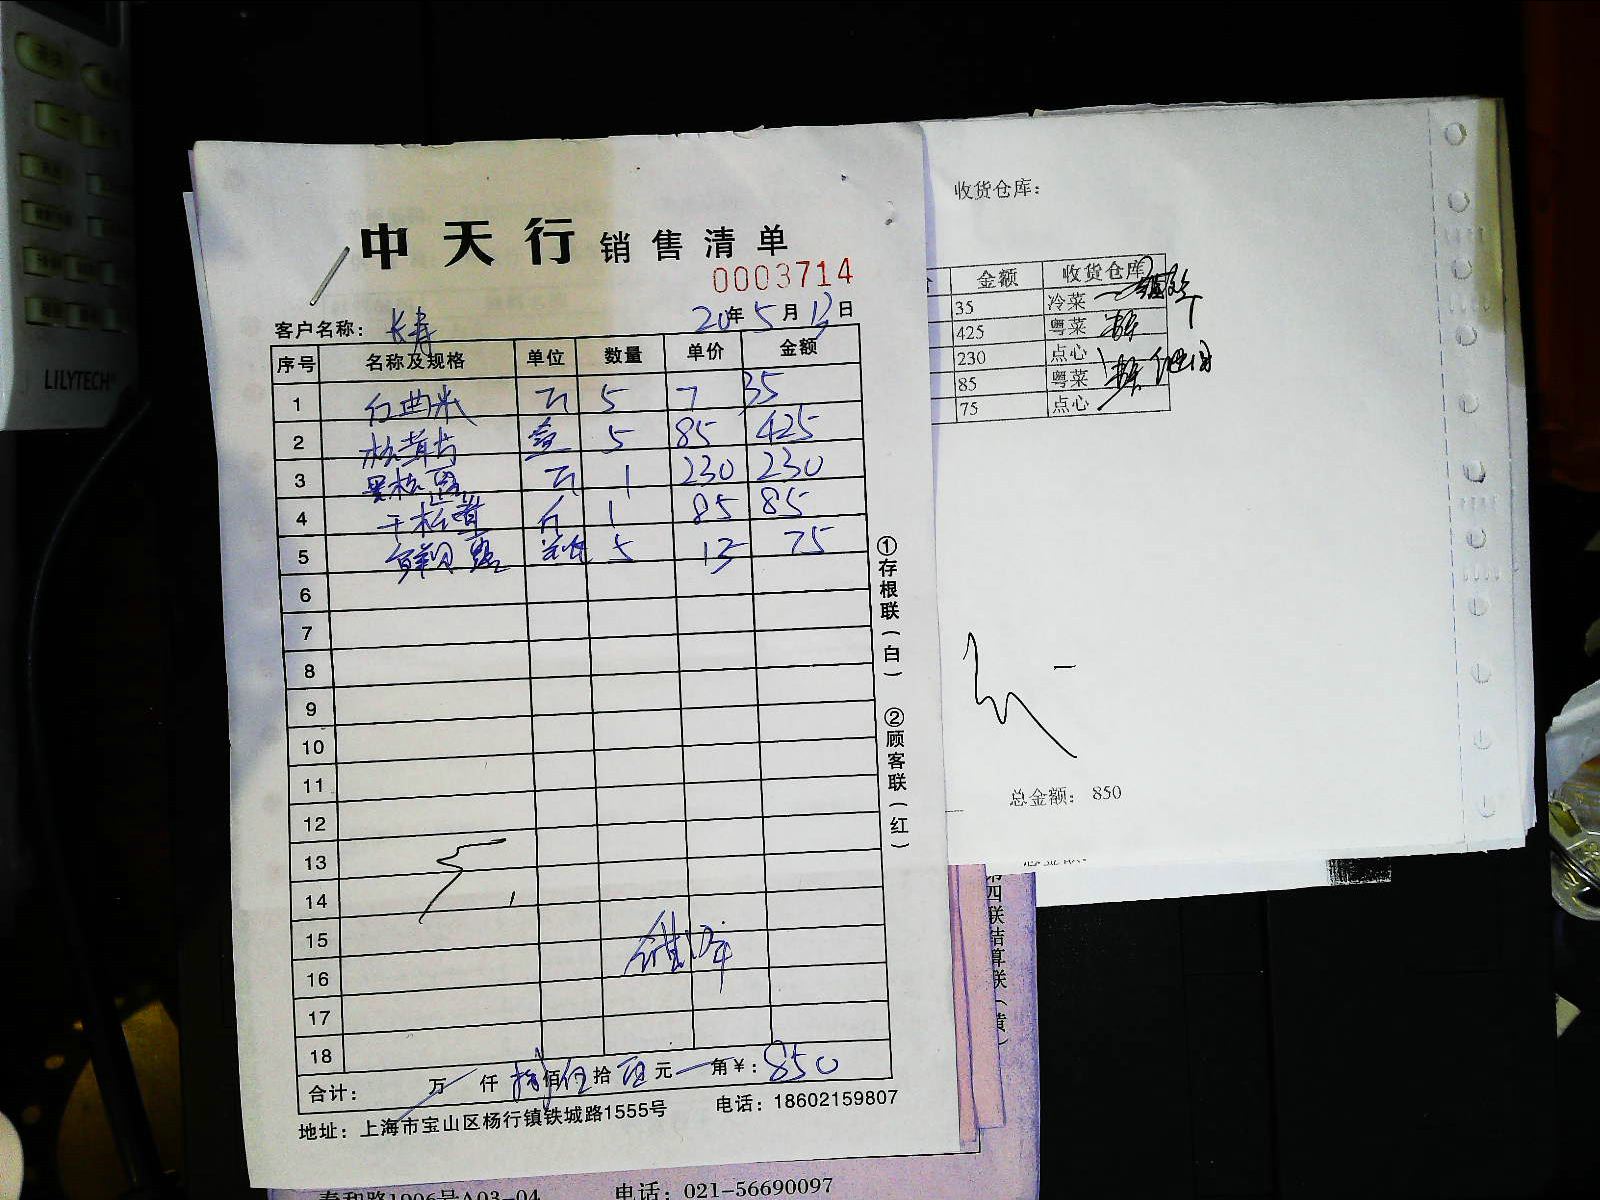 中天行 销售清单
0003714
客户名称: 长寿 20年5月12日
序号 名称及规格 单位 数量 单价 金额
1 红曲米 斤 5 7 35
2 松茸片 盒 5 85 425
3 黑松露 斤 1 230 230
4 干松茸 斤 1 85 85
5 5 15 75
6
7
8
9
10
11
12
13
14
15
16
17
18
合计: 万 仟 捌佰伍拾 元 角¥: 850
地址: 上海市宝山区杨行镇铁城路1555号 电话: 18602159807
①存根联(白) ②顾客联(红)
收货仓库:
金额 收货仓库
35 冷菜
425 粤菜
230 点心
85 粤菜
75 点心
总金额: 850
第四联结算联(黄)
泰和路1006号A03-04 电话: 021-56690097
LILYTECH